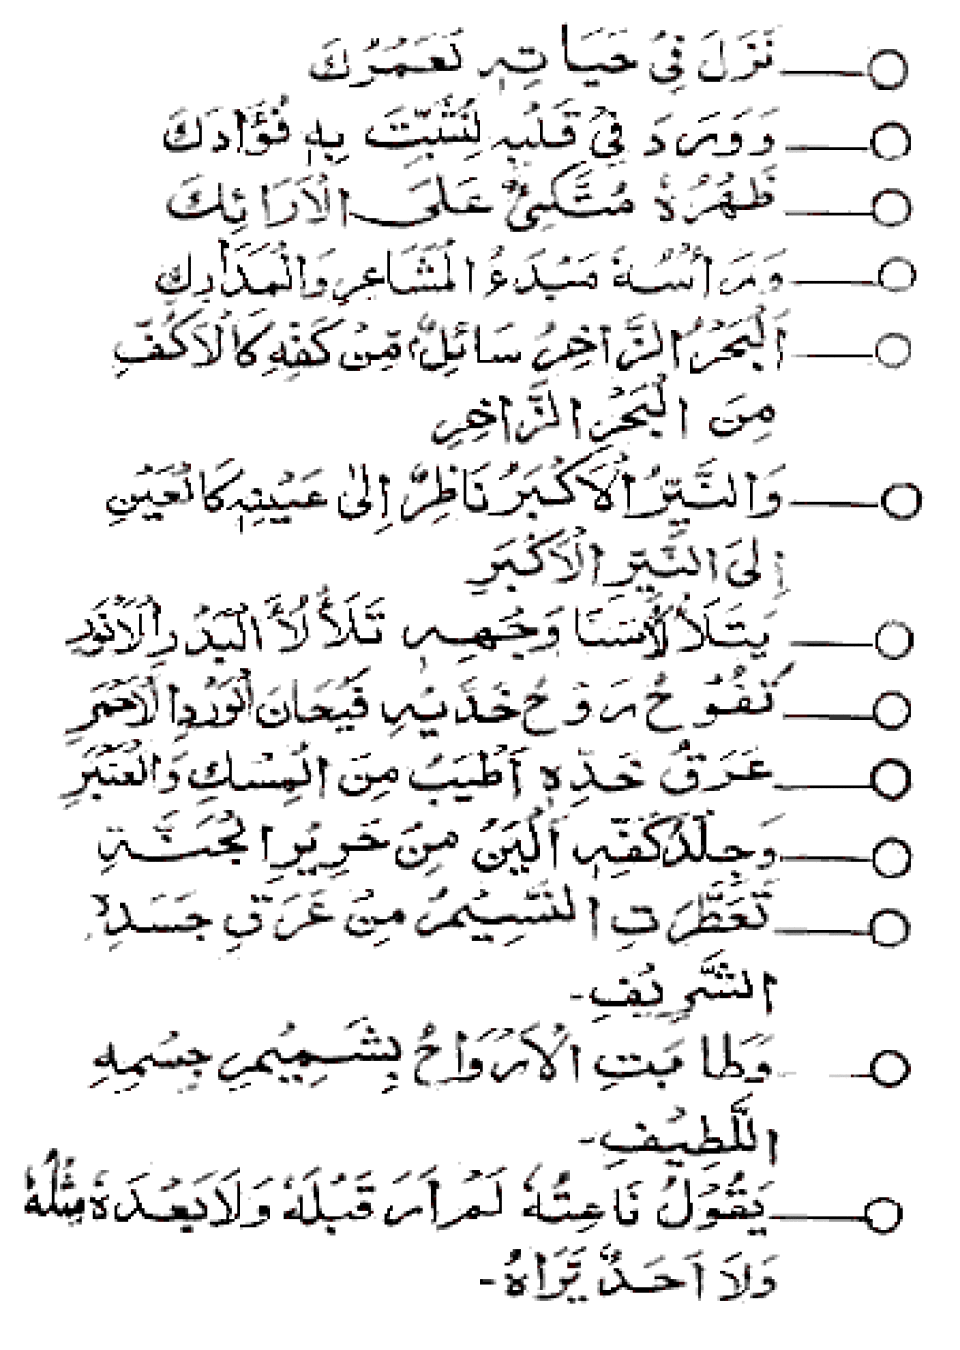 نَزَلَ فِیْ حَیَاتِہٖ لَعَمْرُکَ
وَوَرَدَ فِیْ قَلْبِہٖ لِنُثَبِّتَ بِہٖ فُؤَادَکَ
ظَہْرُہٗ مُتَّکِیٌٔ عَلَی الْاَرَائِکَ
وَرَاْسُہٗ مَبْدَءُ الْمَشَاعِرِ وَالْمَدَارِکِ
اَلْبَحْرُ الزَّاخِرُ سَائِلٌ مِّنْ کَفِّہٖ کَالْاَکُفِّ
مِنَ الْبَحْرِ الزَّاخِرِ
وَالنَّیِّرُ الْاَکْبَرُ نَاظِرٌ اِلٰی عَیْنِہٖ کَالْعَیْنِ
اِلَی النَّیِّرِ الْاَکْبَرِ
یَتَلَأْلَأُ سَنَا وَجْہِہٖ تَلَأْلَأَ الْبَدْرِ الْاَنْوَرِ
تَفُوْحُ رَوْحُ خَدَّیْہِ فَیَحَانَ الْوَرْدِ الْاَحْمَرِ
عَرَقُ خَدِّہٖ اَطْیَبُ مِنَ الْمِسْکِ وَالْعَنْبَرِ
وَجِلْدُ کَفِّہٖ اَلْیَنُ مِنْ حَرِیْرِ الْجَنَّۃِ
تَعَطَّرَتِ النَّسِیْمُ مِنْ عَرَقِ جَسَدِہِ
الشَّرِیْفِ۔
وَطَابَتِ الْاَرْوَاحُ بِشَمِیْمِ جِسْمِہِ
اللَّطِیْفِ۔
یَقُوْلُ نَاعِتُہٗ لَمْ اَرَ قَبْلَہٗ وَلَا بَعْدَہٗ مِثْلَہٗ
وَلَا اَحَدٌ یَّرَاہُ۔